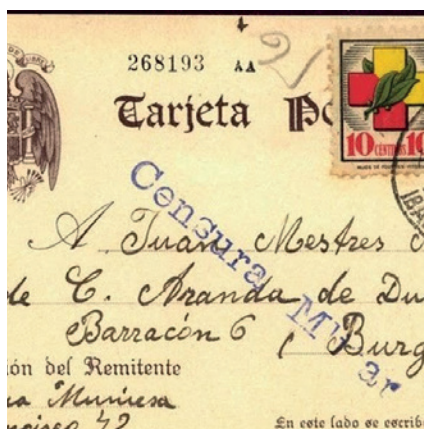 268193 AA
Tarjeta Po
10 CÉNTIMOS 10
Censura Mi ar
A Juan Mestres
de C. Aranda de Du
Barracón 6 ( Burg
ión del Remitente
na Muniesa
42
En este lado se escrib